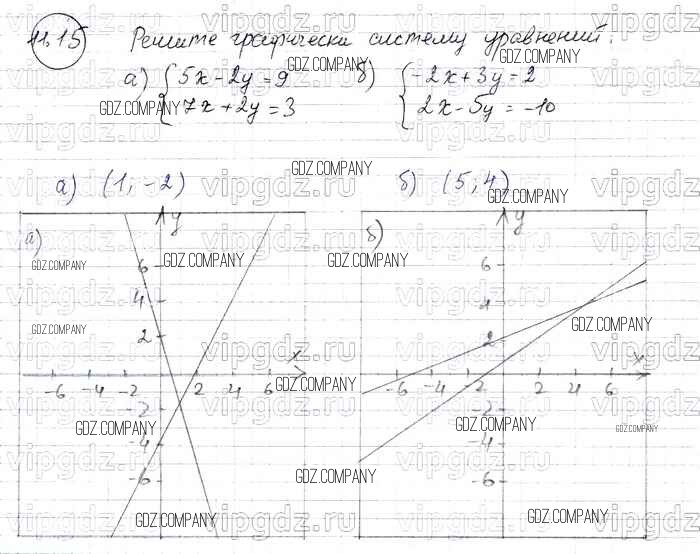 11.15 Решите графически систему уравнений:
а) { 5x-2y=9 б) { -2x+3y=2
7x+2y=3 2x-5y=-10
а) (1; -2) б) (5; 4)
а) y б) y
6 6
4 4
2 2
x x
-6 -4 -2 2 4 6 -6 -4 -2 2 4 6
-2 -2
-4 -4
-6 -6
GDZ.COMPANY
vipgdz.ru